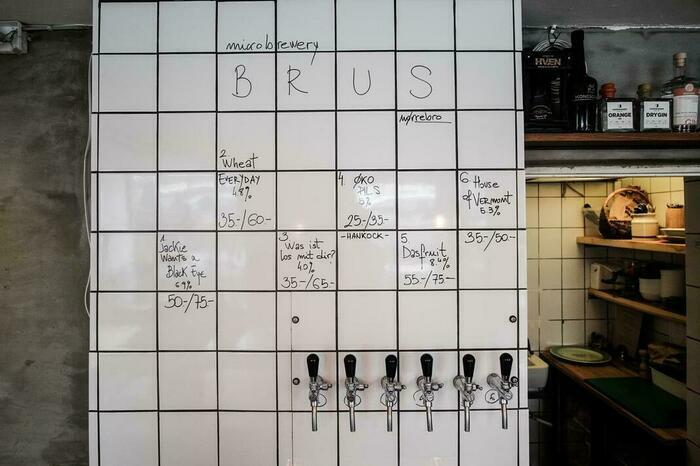 microbrewery
BRUS
nørrebro
1.
Jackie
Wants a
Black Eye
6.9%
50-/75-
2
Wheat
EVERYDAY
4.8%
35-/60-
3.
Was ist
los mit dir?
4.0%
35-/65-
4. ØKO
PILS
5%
25-/35-
-HANCOCK-
5.
Dasfruit
8.4%
55-/75-
6. House
of Vermont
5.3%
35-/50-
HVEN
ORANGE
DRY GIN